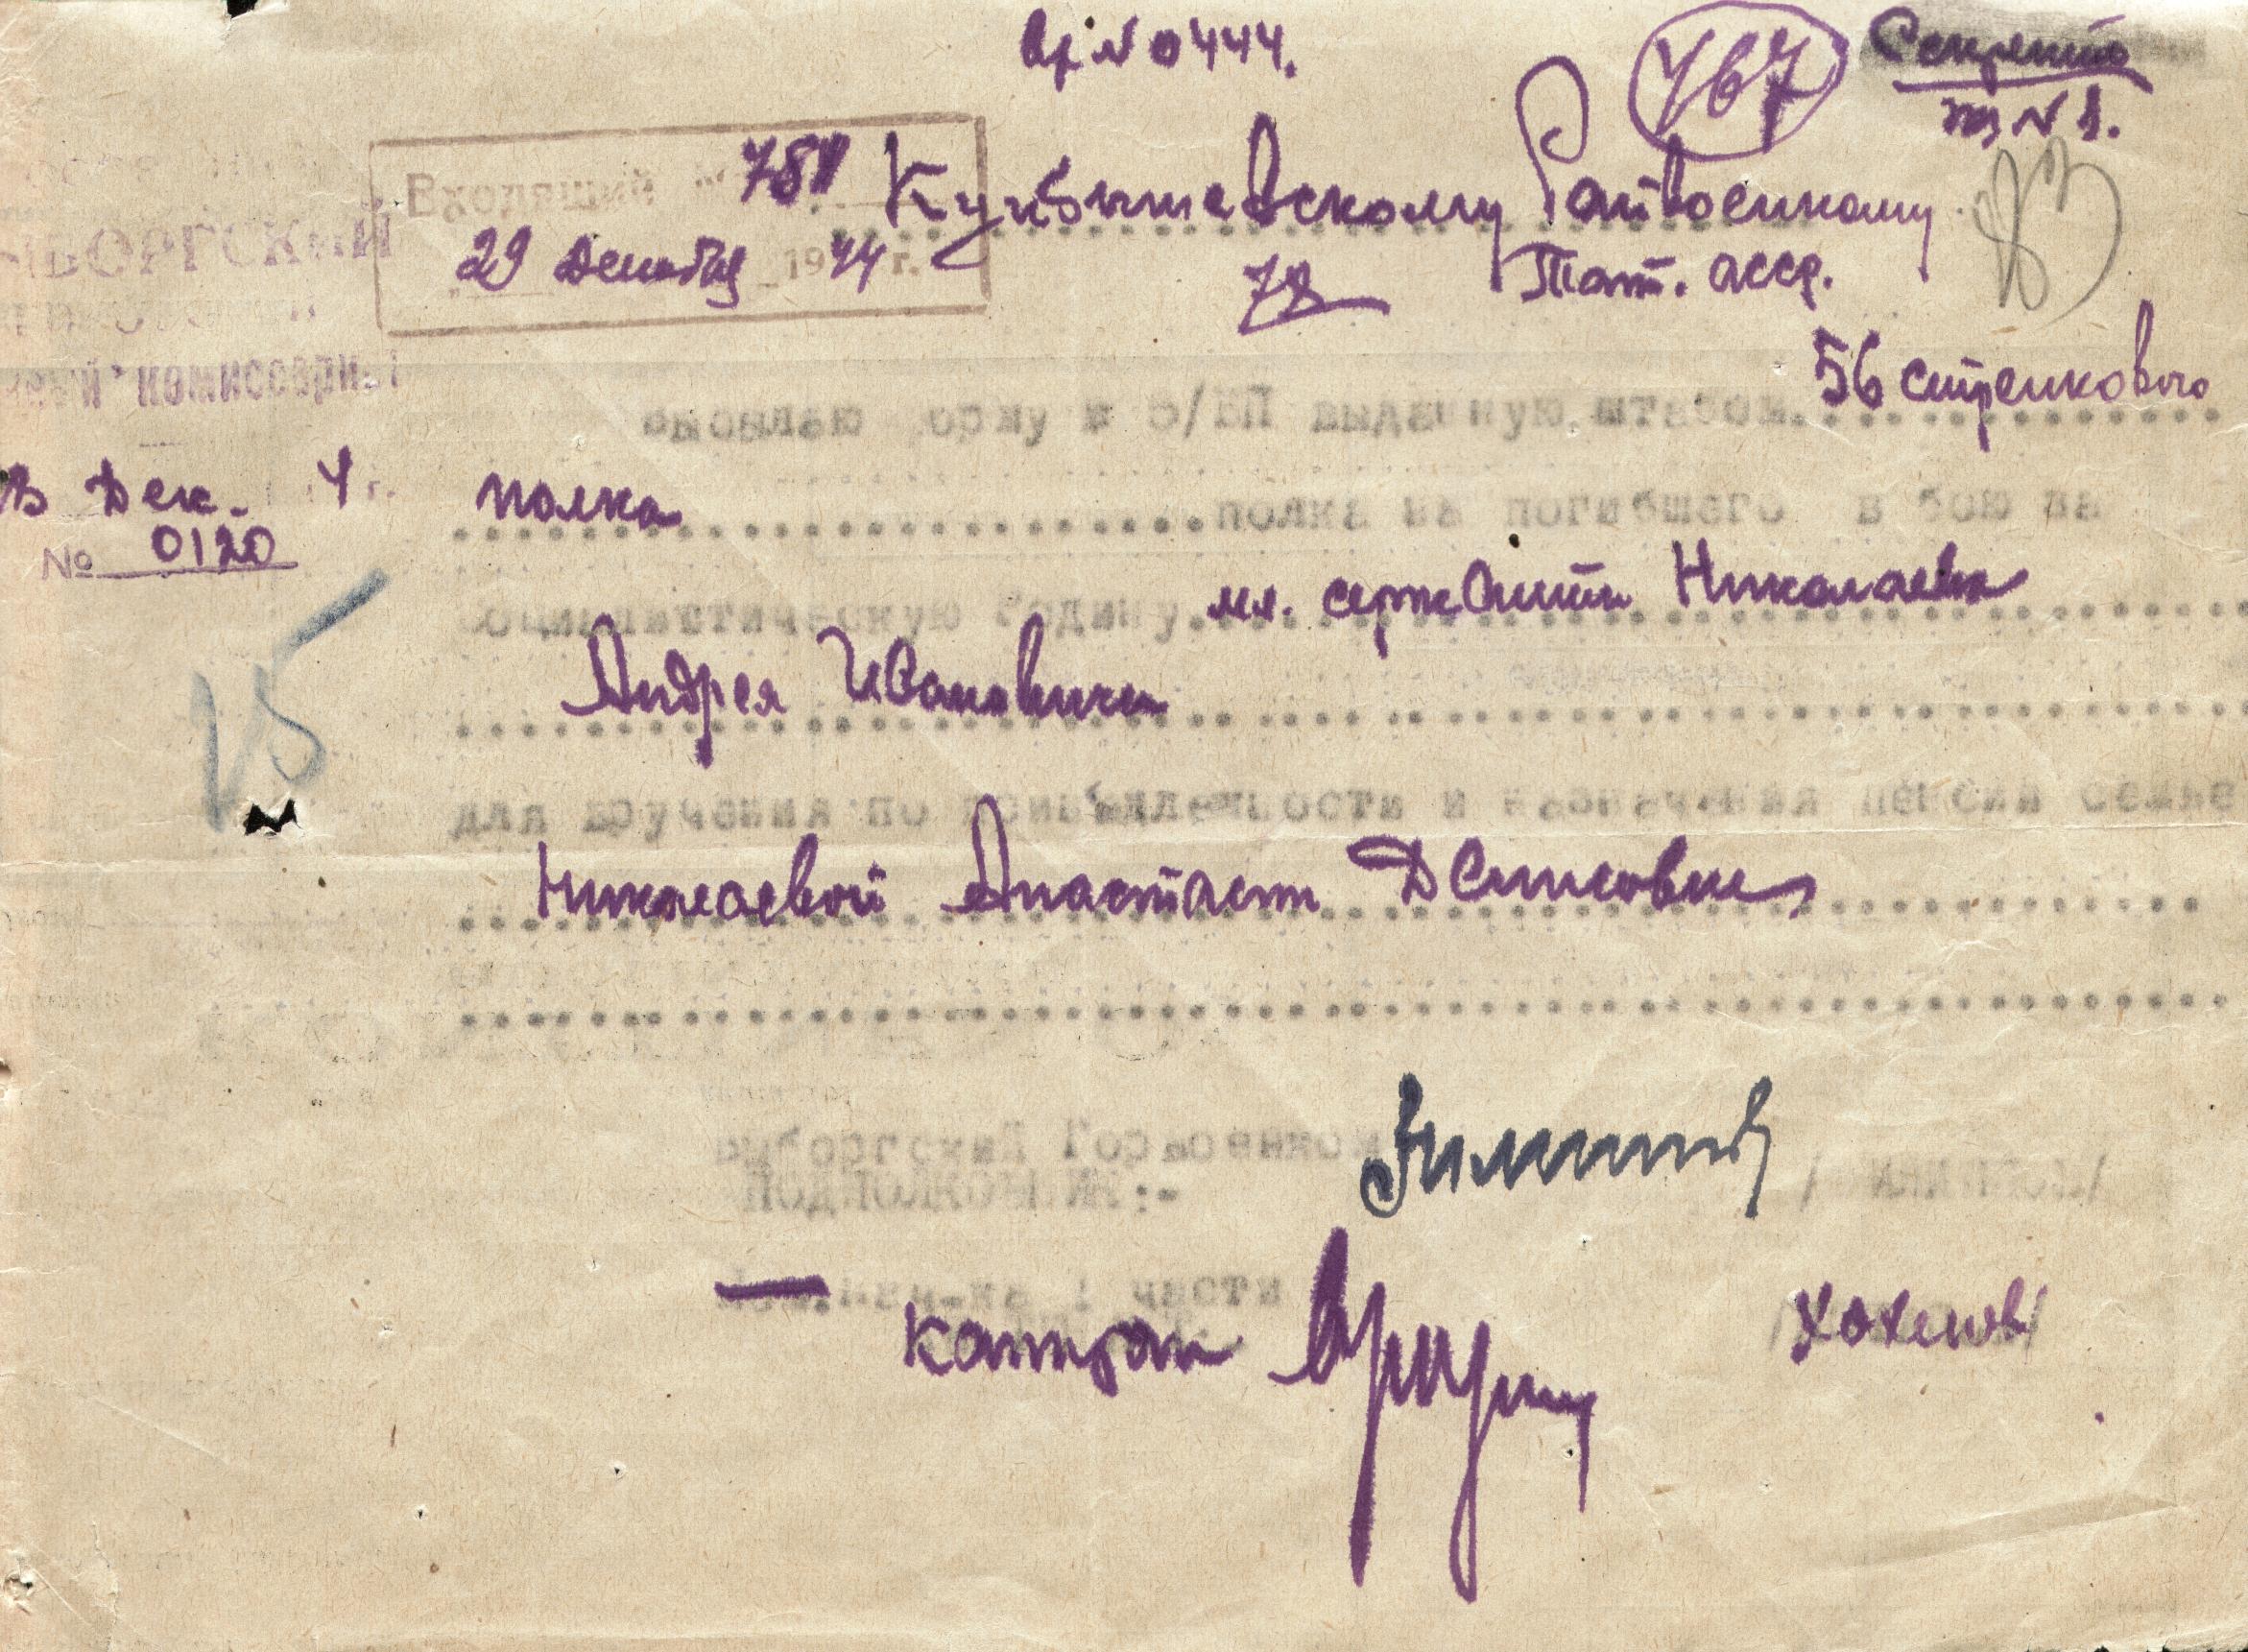 Вх № 0444.
767
Секретно
экз № 1.
Входящий № 781
29 Декабря 1944 г.
Куйбышевскому Райвоенкому
78 Тат. асср.
ВЫБОРГСКИЙ
военный комиссариат
Дек. 4 г.
№ 0120
25
56 стрелкового
Высылаю форму № 5/БП выданную штабом
полка полка на погибшего в бою за
социалистическую Родину мл. сержанта Николаева
Андрея Ивановича
для вручения по принадлежности и назначения пенсии семье
Николаевой Анастасии Денисовне
Выборгский Горвоенком
ПОДПОЛКОВНИК:-
Нач-ка 1 части
капитан
/Хохлов/